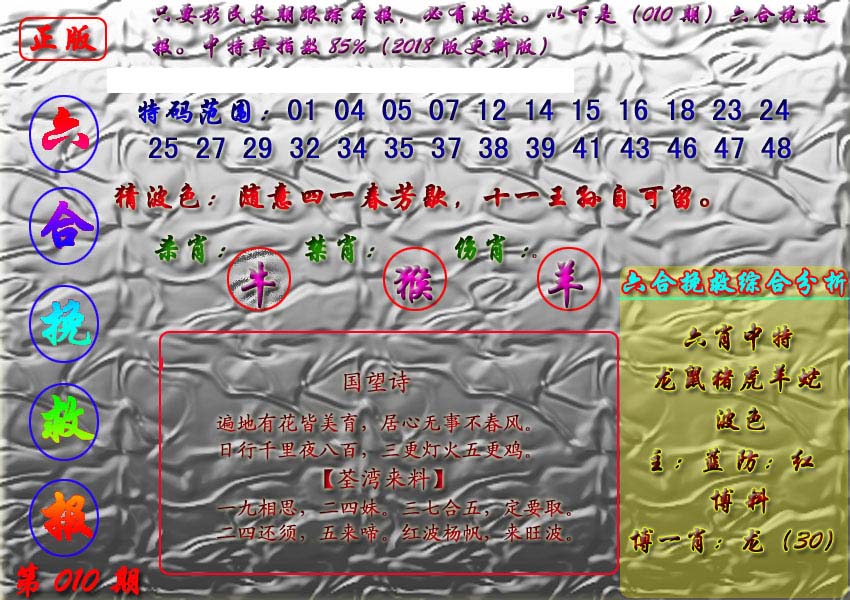 正版
只要彩民长期跟踪本报，必有收获。以下是（010期）六合挽救
报。中特率指数85%（2018版更新版）
六
合
挽
救
报
第 010 期
特码范围：01 04 05 07 12 14 15 16 18 23 24
25 27 29 32 34 35 37 38 39 41 43 46 47 48
猜波色：随意四一春芳歇，十一王孙自可留。
杀肖： 禁肖： 伤肖：。
牛 猴 羊
国望诗
遍地有花皆美育，居心无事不春风。
日行千里夜八百，三更灯火五更鸡。
【荃湾来料】
一九相思，二四妹。三七合五，定要取。
二四还须，五来啼。红波杨帆，来旺波。
六合挽救综合分析
六肖中特
龙鼠猪虎羊蛇
波色
主：蓝防：红
博料
博一肖：龙（30）